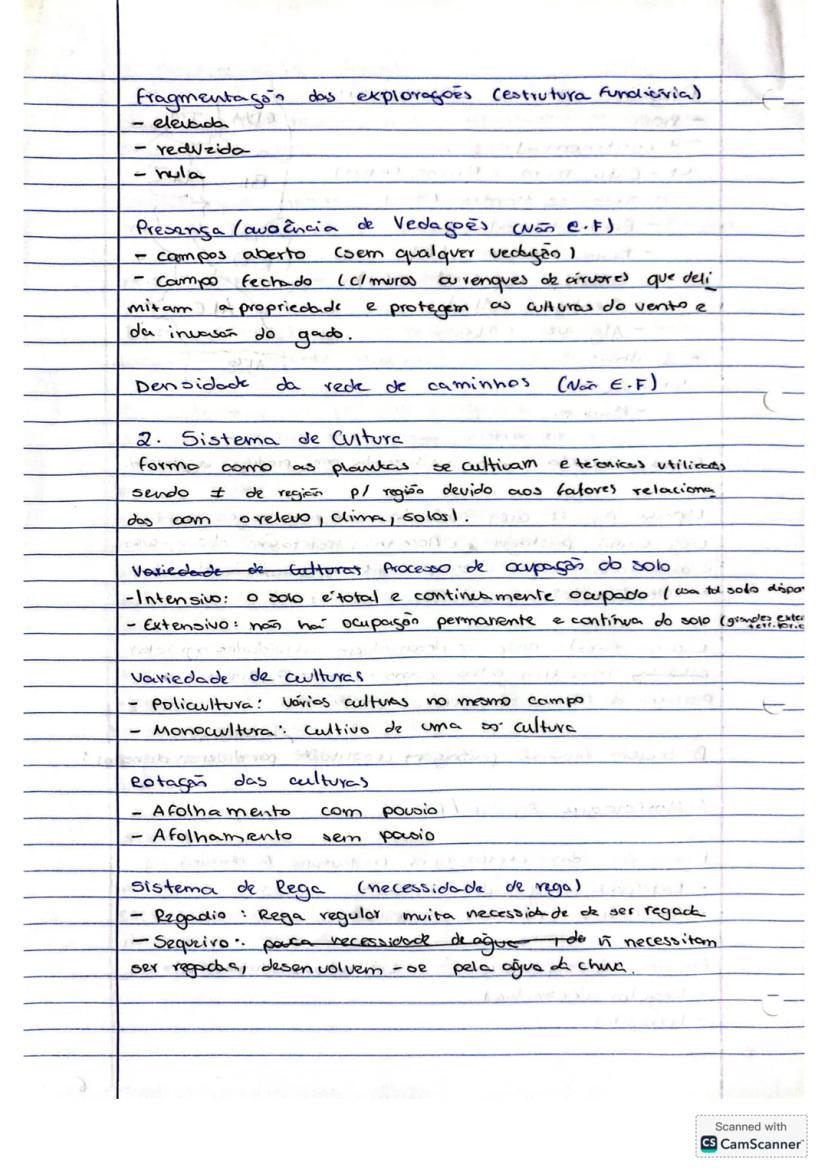 Fragmentação das explorações (estrutura fundiária)
- elevada
- reduzida
- nula
Presença / ausência de Vedações (Não E.F)
- campos aberto (sem qualquer vedação)
- Campo fechado (c/ muros ou renques de árvores) que deli
mitam a propriedade e protegem as culturas do vento e
da invasão do gado.
Densidade da rede de caminhos (Não E.F)
2. Sistema de Cultura
forma como as plantas se cultivam e técnicas utilizadas
sendo ≠ de região p/ região devido aos fatores relaciona
dos com o relevo, clima, solos).
Variedade de Culturas Processo de ocupação do solo
- Intensivo: o solo é total e continuamente ocupado (usa td solo dispo
- Extensivo: não há ocupação permanente e contínua do solo (grandes exten
territor.
Variedade de culturas
- Policultura: vários culturas no mesmo campo
- Monocultura: cultivo de uma só cultura
Rotação das culturas
- Afolhamento com pousio
- Afolhamento sem pousio
Sistema de Rega (necessidade de rega)
- Regadio: Rega regular muita necessidade de ser regada
- Sequeiro: pouca necessidade de água ñ necessitam
ser regadas, desenvolvem-se pela água da chuva.
Scanned with
CS CamScanner